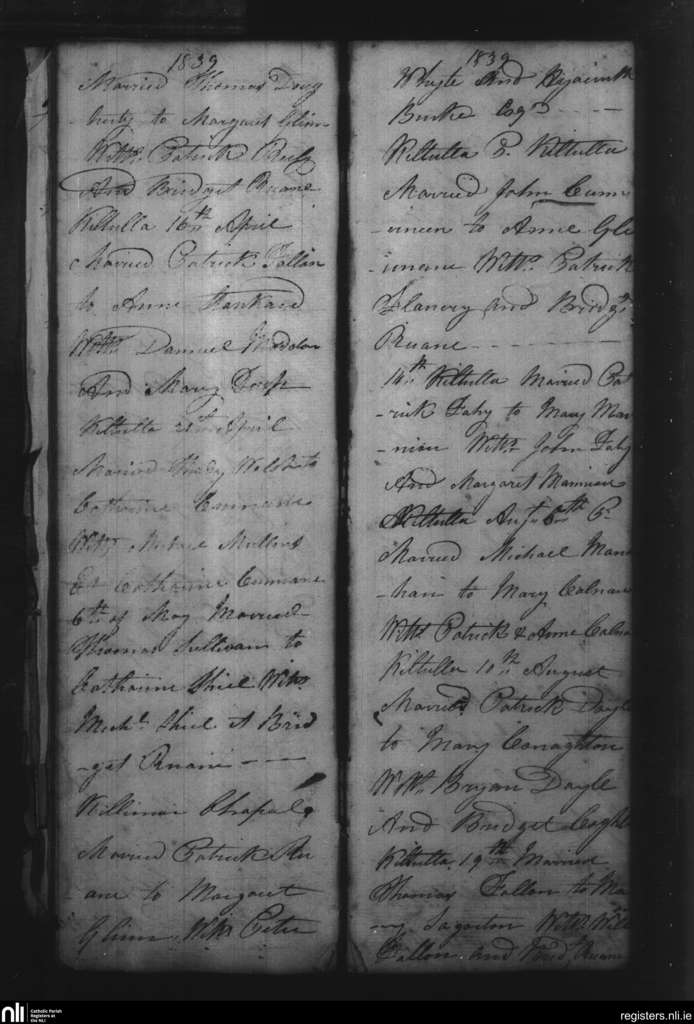 1839
Married Thomas Doug
-herty to Margaret Glinn
Witts. Patrick
And Bridget Ruane
Kiltulla 16th April
Married Patrick Fallon
to Anne Hankard
Witts Daniel
And Mary
Kiltulla April
Married Thady Walsh to
Catherine Cunniane
Witts Mullins
Et Catharine Cunniane
6th of May Married
Thomas Sullivan to
Catharine Shiel Witts.
Michl. Shiel et Brid
-get Ruane ---
Killimor Chapel
Married Patrick Ru
ane to Margaret
Glinn Witts Peter
1839
Whyte And Hyacinth
Burke Esqr
Kiltulla P. Kiltulla
Married John Cunn
to Anne Gle
Witts. Patrick
Flanery and Bridgt.
Ruane
14th Kiltulla Married Pat
-rick Fahy to Mary Man
-nion Witts. John Fahy
And Margaret Mannion
Kiltulla Augt 6th P.
Married Michael Mana
-han to Mary Calnan
Witts Patrick & Anne Calna
Kiltulla 10th August
Married Patrick Dayle
to Mary Conaghton
Witts. Bryan Dayle
And Bridget Cogh
Kiltulla 19th Married
Thomas Fallon to Ma
-ry Witts. Will
Fallon and Bridt. Ruane
nli
Catholic Parish
Registers at
the NLI
registers.nli.ie